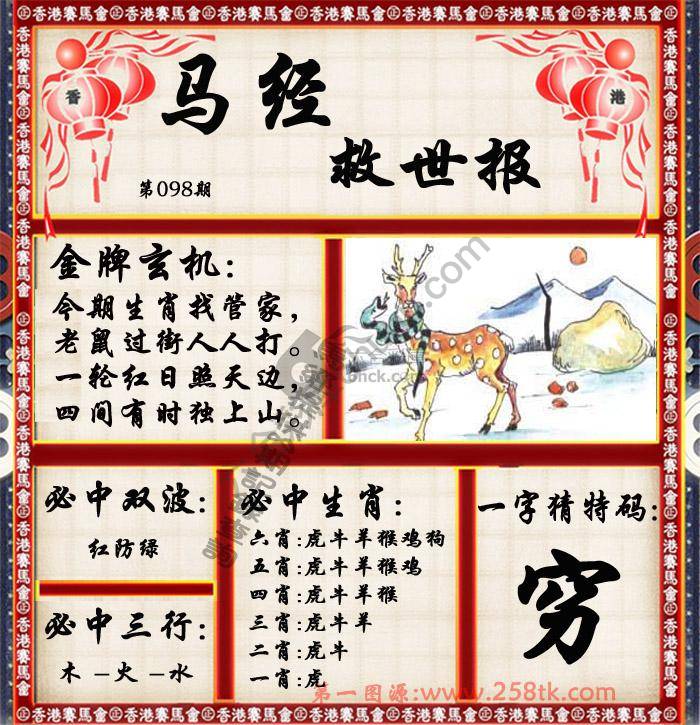 香港賽馬會
香
港
马经
救世报
第098期
金牌玄机:
今期生肖找管家,
老鼠过街人人打。
一轮红日照天边,
四间有时独上山。
必中双波:
红防绿
必中三行:
木-火-水
必中生肖:
六肖:虎牛羊猴鸡狗
五肖:虎牛羊猴鸡
四肖:虎牛羊猴
三肖:虎牛羊
二肖:虎牛
一肖:虎
一字猜特码:
穷
第一图源:www.258tk.com